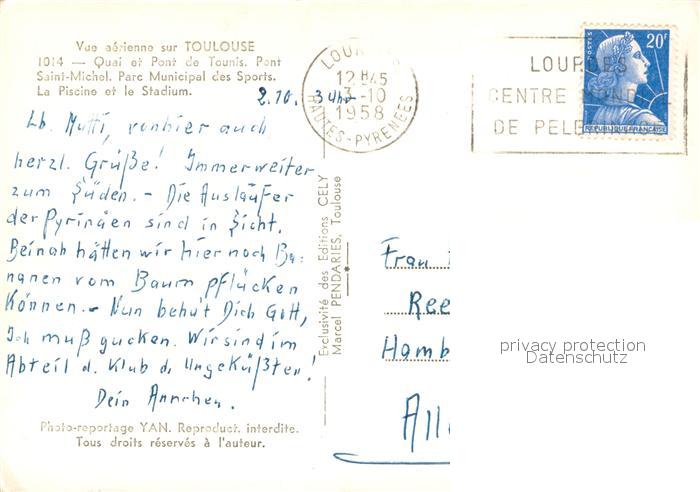 Vue aérienne sur TOULOUSE
1014 — Quai et Pont de Tounis. Pont
Saint-Michel. Parc Municipal des Sports.
La Piscine et le Stadium.
2.10. 3 Uhr
Lb. Mutti, von hier auch
herzl. Grüße! Immer weiter
zum Süden. - Die Ausläufer
der Pyrinäen sind in Sicht.
Beinah hätten wir hier noch Ba:
nanen vom Baum pflücken
können. - Nun behüt Dich Gott,
Ich muß gucken. Wir sind im
Abteil d. Klub d. Ungeküßten!
Dein Annchen.
Photo-reportage YAN. Reproduct. interdite.
Tous droits réservés à l'auteur.
Exclusivité des Editions CELY
Marcel PENDARIES, Toulouse
LOU
12 H45
3-10
1958
HAUTES-PYRENEES
LOURDES
CENTRE
DE
POSTES
20F
REPUBLIQUE FRANÇAISE
Frau
Ree
Hamb
All
privacy protection
Datenschutz